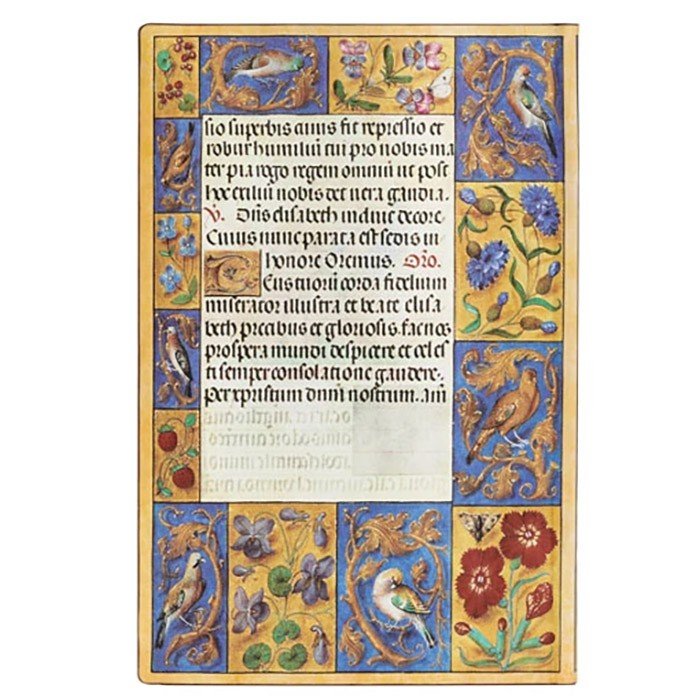 sio superbis cuius fit repressio et
robur humiliū cui pro nobis ma
ter pia rogo regem omniū ut post
hoc exiliū nobis det uera gaudia.
V. Dñs elisabeth induit decore
Cuius nunc parata est sedis in
honore Oremus. Oro.
Deus tuorū corda fidelium
miserator illustra et beate elisa
beth precibus et gloriosis. fac nos
prospera mundi despicere et celes
ti semper consolatione gaudere.
Per xpistum dnm nostrum. am